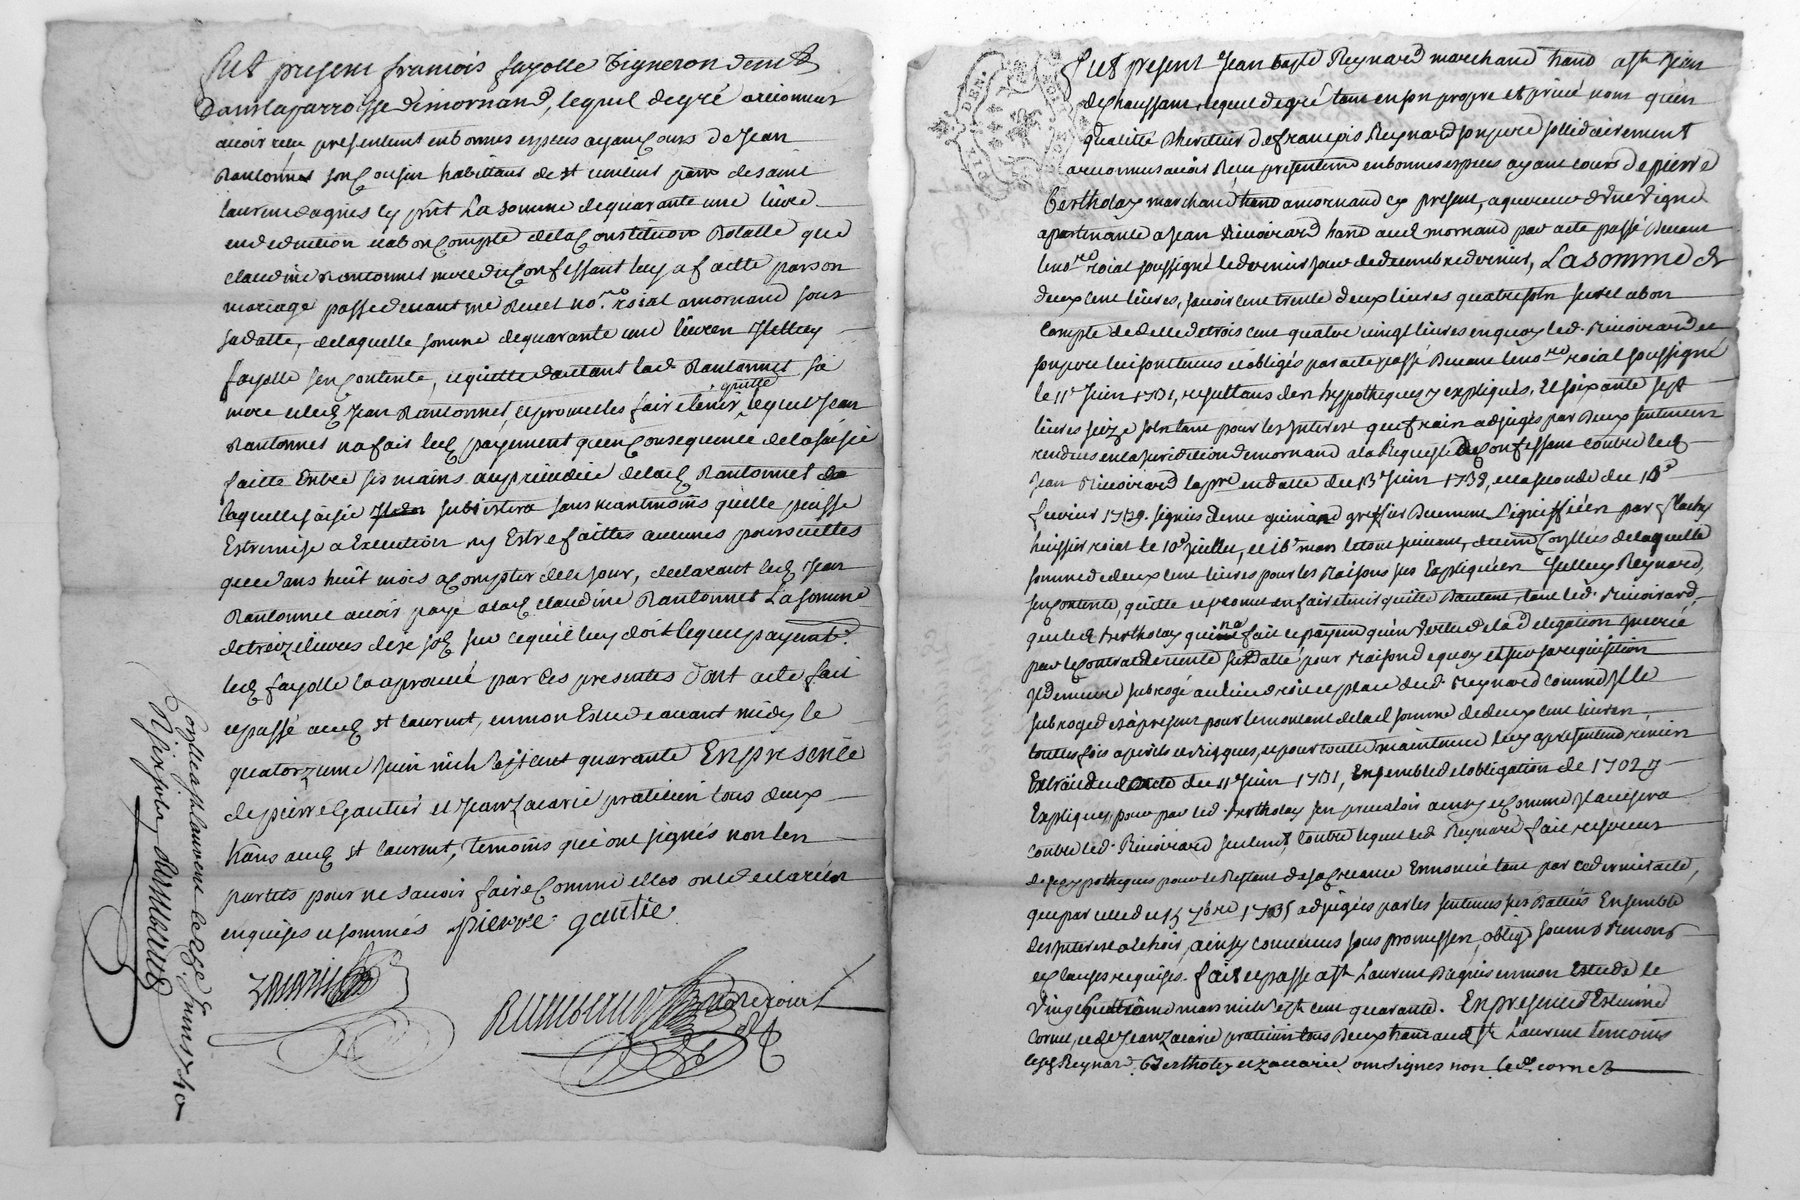 Fut present francois fayolle Vigneron demt
Dans la parroisse de mornand, lequel de gré a reconnut
avoir reçu presentemt en bonnes especes ayant Cours de Jean
Rantonnet son Cousin habittant de st vincent parr. de saint
laurent dagnies Cy prnt La somme de quarante une livre
en deduction et a bon Compte de la Constitution Dotalle que
claudine Rantonnet mere du Confessant luy a faitte par son
mariage passé devant me not. roial a mornand sous
sa datte, de laquelle somme de quarante une livres Jl luy
fayolle sen Contente, et quitte dautant lad. Rantonnet sa
mere et led. Jean Rantonnet, et promet les faire tenir quitte, lequel Jean
Rantonnet na fait led. payement quen Consequence de la saisie
faitte Entre ses mains au prejudice de lad. Rantonnet de
laquelle saisie subsistera sans neantmoins quelle puisse
Estre mise a Execution ny Estre faittes aucunes poursuittes
que dans huit mois a Compter de ce jour, declarant led. Jean
Rantonnet avoir payé a lad. claudine Rantonnet La somme
de treize livres dix sols sur ce qu'il luy doit lequel payemt.
led. fayolle a aprouvé par Ces presentes Dont acte fait
et passé aud. st laurent, en mon Estude avant midy le
quatorzieme Juin mil sept cent quarante En presence
de pierre Gautier et Jean Zacarie praticien tous deux
hans aud. st laurent, temoins qui ont signés non les
parties pour ne scavoir faire Comme elles ont declarées
enquises et sommés pierre gautie.
zacarie
Controllé a st laurent le 25e Juin 1740
R. six sols
Fut present Jean bapte Reynard marchand hand a st Jean
de chaussant, lequel de gré tant en son propre et privé nom quen
qualitté Dheritier de francois Reynard son pere sollidairement
a reconnu avoir Reçu presentemt en bonnes especes ayant cours de pierre
bertholay marchand hand a mornand cy present, aquereur dune vigne
apartenante a Jean Rivoirard hand aud. mornand par acte passé Devant
le nore roial soussigné le dernier jour de decembre dernier, La somme de
deux cent livres, scavoir cent trente deux livres quatre sols sur et a bon
Compte de celle de trois cent quatre vingt livres en quoy led. Rivoirard et
son pere luy sont tenus et obligés par acte passé Devant le nore roial soussigné
le 11e Juin 1731, resultans des hypotheques y expliqués, Et soixante sept
livres seize sols tant pour les Interest que frais adjugés par Deux sentences
rendues en la juridiction de mornand a la Requeste du Confessant contre led.
Jean Rivoirard la pre en datte du 13e Juin 1738, et la seconde du 18e
fevrier 1739. signées de me guinand greffier Deument signiffiées par flachy
huissier roial le 10e juillet, et 16e mars le tout suivant, deument Controllées de laquelle
somme de deux cent livres pour les Raisons sus Expliquées Jl luy Reynard,
sen Contente, quitte et promet en faire tenir quitte Dautant, tant led. Rivoirard,
que led. Bertholay qui na fait ce payemt quen vertu de la Delegation Jnserée
par le Contract de vente sus datté, pour Raison de quoy et sur sa requisition
Jl demeure subrogé au lieu droit et place dud. Reynard Comme Jl le
subroge des a present pour le montant de lad. somme de deux cent livres
touttes fois a perils et risques, et pour toutte maintenue luy a presentemt remis
Extrait dud. acte du 11e Juin 1731, Ensemble de lobligation de 1702 y
Expliquée, pour par led. Bertholay sen prevaloir ainsy et Comme Jl avisera
contre led. Rivoirard seulemt, Contre lequel led. Reynard fait reserve
des hypotheques pour le Restant de sa Creance Ennoncée tant par ce dernier acte,
que par celle du 15 7bre 1735 adjugées par les sentences sus Dattées Ensemble
des Interest a echoir, ainsy convenus sous promesses, obligs soumis Renons
et clauses requises. fait et passé a st Laurent Dagnies en mon Estude le
vingt quatrieme mars mil sept cent quarante. En presence d'Estienne
Cornet, et de Jean Zacarie praticien tous Deux hans aud. st Laurent temoins
lesd. Reynard, Bertholay et zacarie ont signes non led. cornet